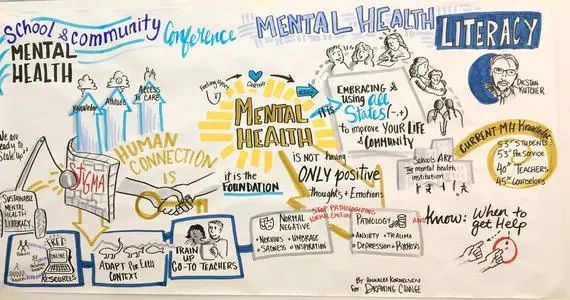 School & community Conference
MENTAL
HEALTH
MENTAL HEALTH LITERACY
DR. STAN
KUTCHER
Knowledge
Attitude
Access
To CARE
We are
Ready to
Scale Up"
STIGMA
HUMAN
CONNECTION
IS
MENTAL
HEALTH
it is the
FOUNDATION
IT IS
EMBRACING
& using all
States (-,+)
to improve YOUR LIFE
& COMMUNITY
IS NOT having
ONLY positive
Thoughts + Emotions
Schools ARE
The mental health
institution
CURRENT MH Knowledge
53% STUDENTS
53% Pre Service
40% TEACHERS
45% Counselors
SUSTAINABLE
MENTAL
HEALTH
LITERACY
FREE
ONLINE
RESOURCES
ADAPT For EACH
CONTEXT
TRAIN
UP
GO-TO TEACHERS
NORMAL
NEGATIVE
• NERVOUS • UMBRAGE
• SADNESS • INSPIRATION
STOP PATHOLOGIZING
NORMAL EMOTIONS
PATHOLOGY
• ANXIETY • TRAUMA
• DEPRESSION • PSYCHOSIS
AND Know: When to
get Help
By: ANNALEE KORNELSEN
For: DRAWING CHANGE